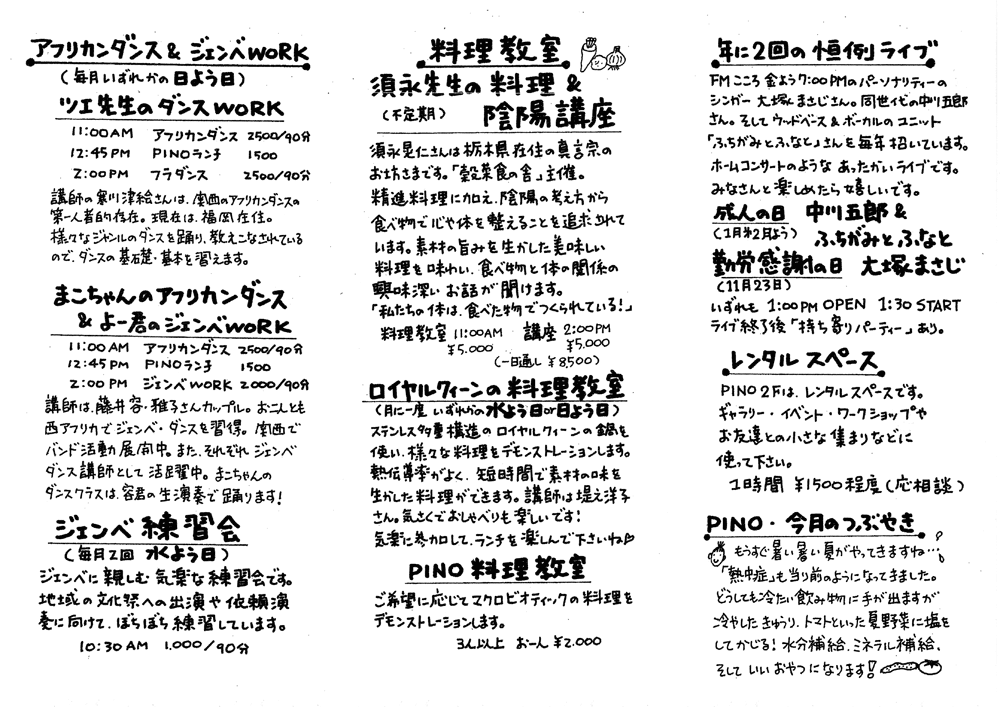 アフリカンダンス & ジェンベWORK
(毎月いずれかの日よう日)
ツエ先生のダンスWORK
11:00AM アフリカンダンス 2500/90分
12:45PM PINOランチ 1500
2:00PM フラダンス 2500/90分
講師の寒川津絵さんは、関西のアフリカンダンスの
第一人者的存在。現在は、福岡在住。
様々なジャンルのダンスを踊り、教えこなされている
ので、ダンスの基礎・基本を習えます。
まこちゃんのアフリカンダンス
& よー君のジェンベWORK
11:00AM アフリカンダンス 2500/90分
12:45PM PINOランチ 1500
2:00PM ジェンベWORK 2000/90分
講師は、藤井容・雅子さんカップル。お二人とも
西アフリカでジェンベ・ダンスを習得。関西で
バンド活動展開中。また、それぞれジェンベ
ダンス講師として活躍中。まこちゃんの
ダンスクラスは、容君の生演奏で踊ります!
ジェンベ練習会
(毎月2回 水よう日)
ジェンベに親しむ気楽な練習会です。
地域の文化祭への出演や依頼演
奏に向けて、ぼちぼち練習しています。
10:30AM 1,000/90分
料理教室
須永先生の料理 &
(不定期) 陰陽講座
須永晃仁さんは栃木県在住の真言宗の
お坊さまです。「穀菜食の舎」主催。
精進料理に加え、陰陽の考え方から
食べ物で心や体を整えることを追求されて
います。素材の旨みを生かした美味しい
料理を味わい、食べ物と体の関係の
興味深いお話が聞けます。
「私たちの体は、食べた物でつくられている!」
料理教室 11:00AM ¥5.000 講座 2:00PM ¥5.000
(一日通し ¥8,500)
ロイヤルクィーンの料理教室
(月に一度 いずれかの水よう日or日よう日)
ステンレス多重構造のロイヤルクィーンの鍋を
使い、様々な料理をデモンストレーションします。
熱伝導率がよく、短時間で素材の味を
生かした料理ができます。講師は堤え洋子
さん。気さくでおしゃべりも楽しいです!
気楽に参加して、ランチを楽しんで下さいね♪
PINO 料理教室
ご希望に応じてマクロビオティックの料理を
デモンストレーションします。
3人以上 お一人 ¥2.000
年に2回の恒例ライブ
FMこころ 金よう7:00PMのパーソナリティーの
シンガー 大塚まさじさん。同世代の中川五郎
さん。そしてウッドベース&ボーカルのユニット
「ふちがみとふなと」さんを毎年招いています。
ホームコンサートのような あったかいライブです。
みなさんと楽しめたら嬉しいです。
成人の日 中川五郎 &
(1月第2月よう) ふちがみとふなと
勤労感謝の日 大塚まさじ
(11月23日)
いずれも 1:00PM OPEN 1:30 START
ライブ終了後「持ち寄りパーティー」あり。
レンタルスペース
PINO 2Fは、レンタルスペースです。
ギャラリー・イベント・ワークショップや
お友達との小さな集まりなどに
使って下さい。
1時間 ¥1500程度(応相談)
PINO・今月のつぶやき
もうすぐ暑い暑い夏がやってきますね…
「熱中症」も当り前のようになってきました。
どうしても冷たい飲み物に手が出ますが
冷やしたきゅうり、トマトといった夏野菜に塩を
してかじる! 水分補給、ミネラル補給、
そしていいおやつになります!